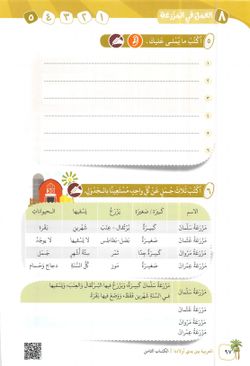 ٨ العمل في المزرعة
١ ٢ ٣ ٤ ٥
٥ أكتب ما يملى عليك.
١
٢
٣
٤
٥
٦ أكتب ثلاث جمل عن كل واحد، مستعينا بالجدول.
الاسم كبيرة / صغيرة يزرع يسقيها الحيوانات
مزرعة سلمان كبيرة برتقال - عنب شهرين بقرة
مزرعة سلمان صغيرة بصل - بطاطس لا يسقيها لا يوجد
مزرعة عمران كبيرة جدا تمر ثلاثة أشهر جمل
مزرعة مروان صغيرة موز كل السنة دجاج وحمام
مزرعة سلمان كبيرة، ويزرع فيها البرتقال والعنب، ويسقيها
في السنة شهرين فقط، ووضع فيها بقرة.
مزرعة سلمان
مزرعة عمران
مزرعة مروان
٩٧ العربية بين يدي أولادنا | الكتاب الثامن